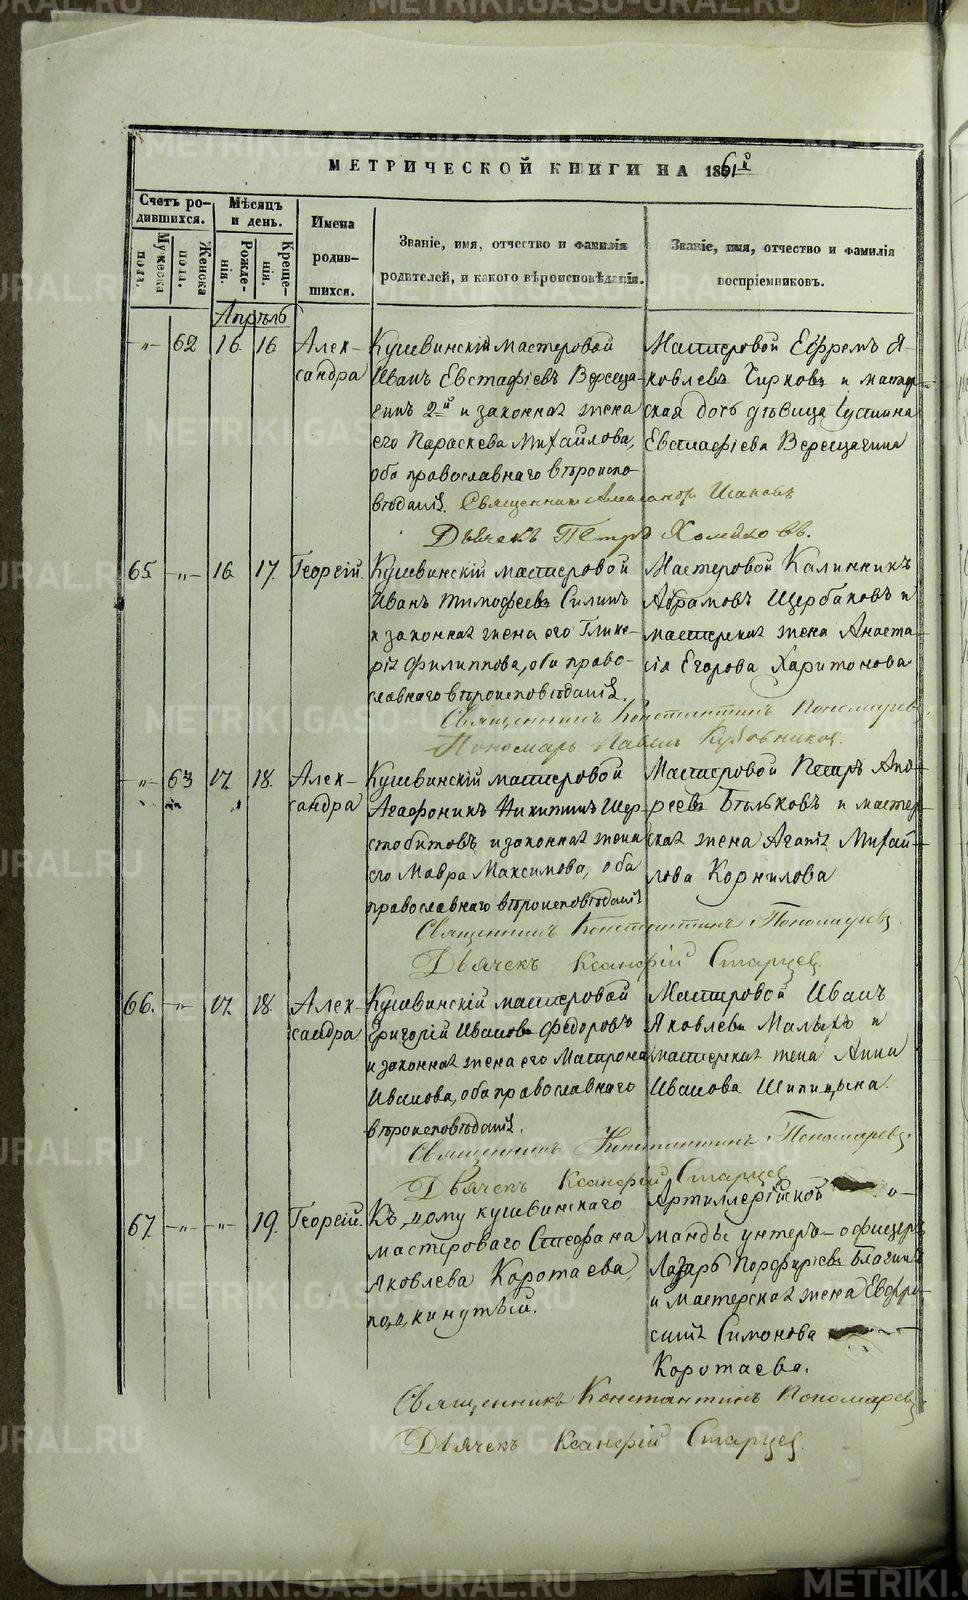 МЕТРИЧЕСКОЙ КНИГИ НА 1861й
Счетъ родившихся.
Мѣсяцъ и день.
Имена родившихся.
Званіе, имя, отчество и фамилія родителей, и какого вѣроисповѣданія.
Званіе, имя, отчество и фамилія воспріемниковъ.
Мужеска пола.
Женска пола.
Рожденія.
Крещенія.
Апрѣль
-"- 62 16. 16. Александра
Кушвинскій мастеровой
Иванъ Евстафіевъ Вереща
гинъ 2й и законная жена
его Параскева Михайлова,
оба православнаго вѣроиспо-
вѣданія.
Мастеровой Ефремъ Я-
ковлевъ Чирковъ и мастер-
ская дочь дѣвица Іустина
Евстафіева Верещагина
Священникъ Александръ Исаковъ
Дьячекъ Петръ Хомяковъ.
65. -"- 16. 17. Георгій.
Кушвинскій мастеровой
Иванъ Тимофеевъ Силинъ
и законная жена его Глике-
рія Филиппова, оба право-
славнаго вѣроисповѣданія.
Мастеровой Калинникъ
Абрамовъ Щербаковъ и
мастерская жена Анаста-
сія Егорова Харитонова
Священникъ Константинъ Пономаревъ
Пономарь Павелъ
-"- 63 17. 18. Александра
Кушвинскій мастеровой
Агафоникъ Никитинъ Шер
стобитовъ и законная жена
его Мавра Максимова, оба
православнаго вѣроисповѣданія
Мастеровой Петръ Анд
реевъ Бѣльковъ и мастер-
ская жена Агапія Михай-
лова Корнилова
Священникъ Константинъ Пономаревъ.
Дьячекъ Ксанфій Старцев.
66. -"- 17. 18. Александра
Кушвинскій мастеровой
Григорій Ивановъ Федоровъ
и законная жена его Матрона
Иванова, оба православнаго
вѣроисповѣданія.
Мастеровой Иванъ
Яковлевъ Малыхъ и
мастерская жена Анна
Иванова Шипицына.
Священникъ Константинъ Пономаревъ.
Дьячекъ Ксанфій Старцев
67. -"- -"- 19. Георгій.
Къ дому кушвинскаго
мастероваго Стефана
Яковлева Коротаева,
подкинутый.
Артиллерійской
манды унтеръ-офицеръ
Лазарь Порфиріевъ Благинъ
и мастерская жена Евфро-
синія Симонова
Коротаева.
Священникъ Константинъ Пономаревъ
Дьячекъ Ксанфій Старцев.
METRIKI.GASO-URAL.RU